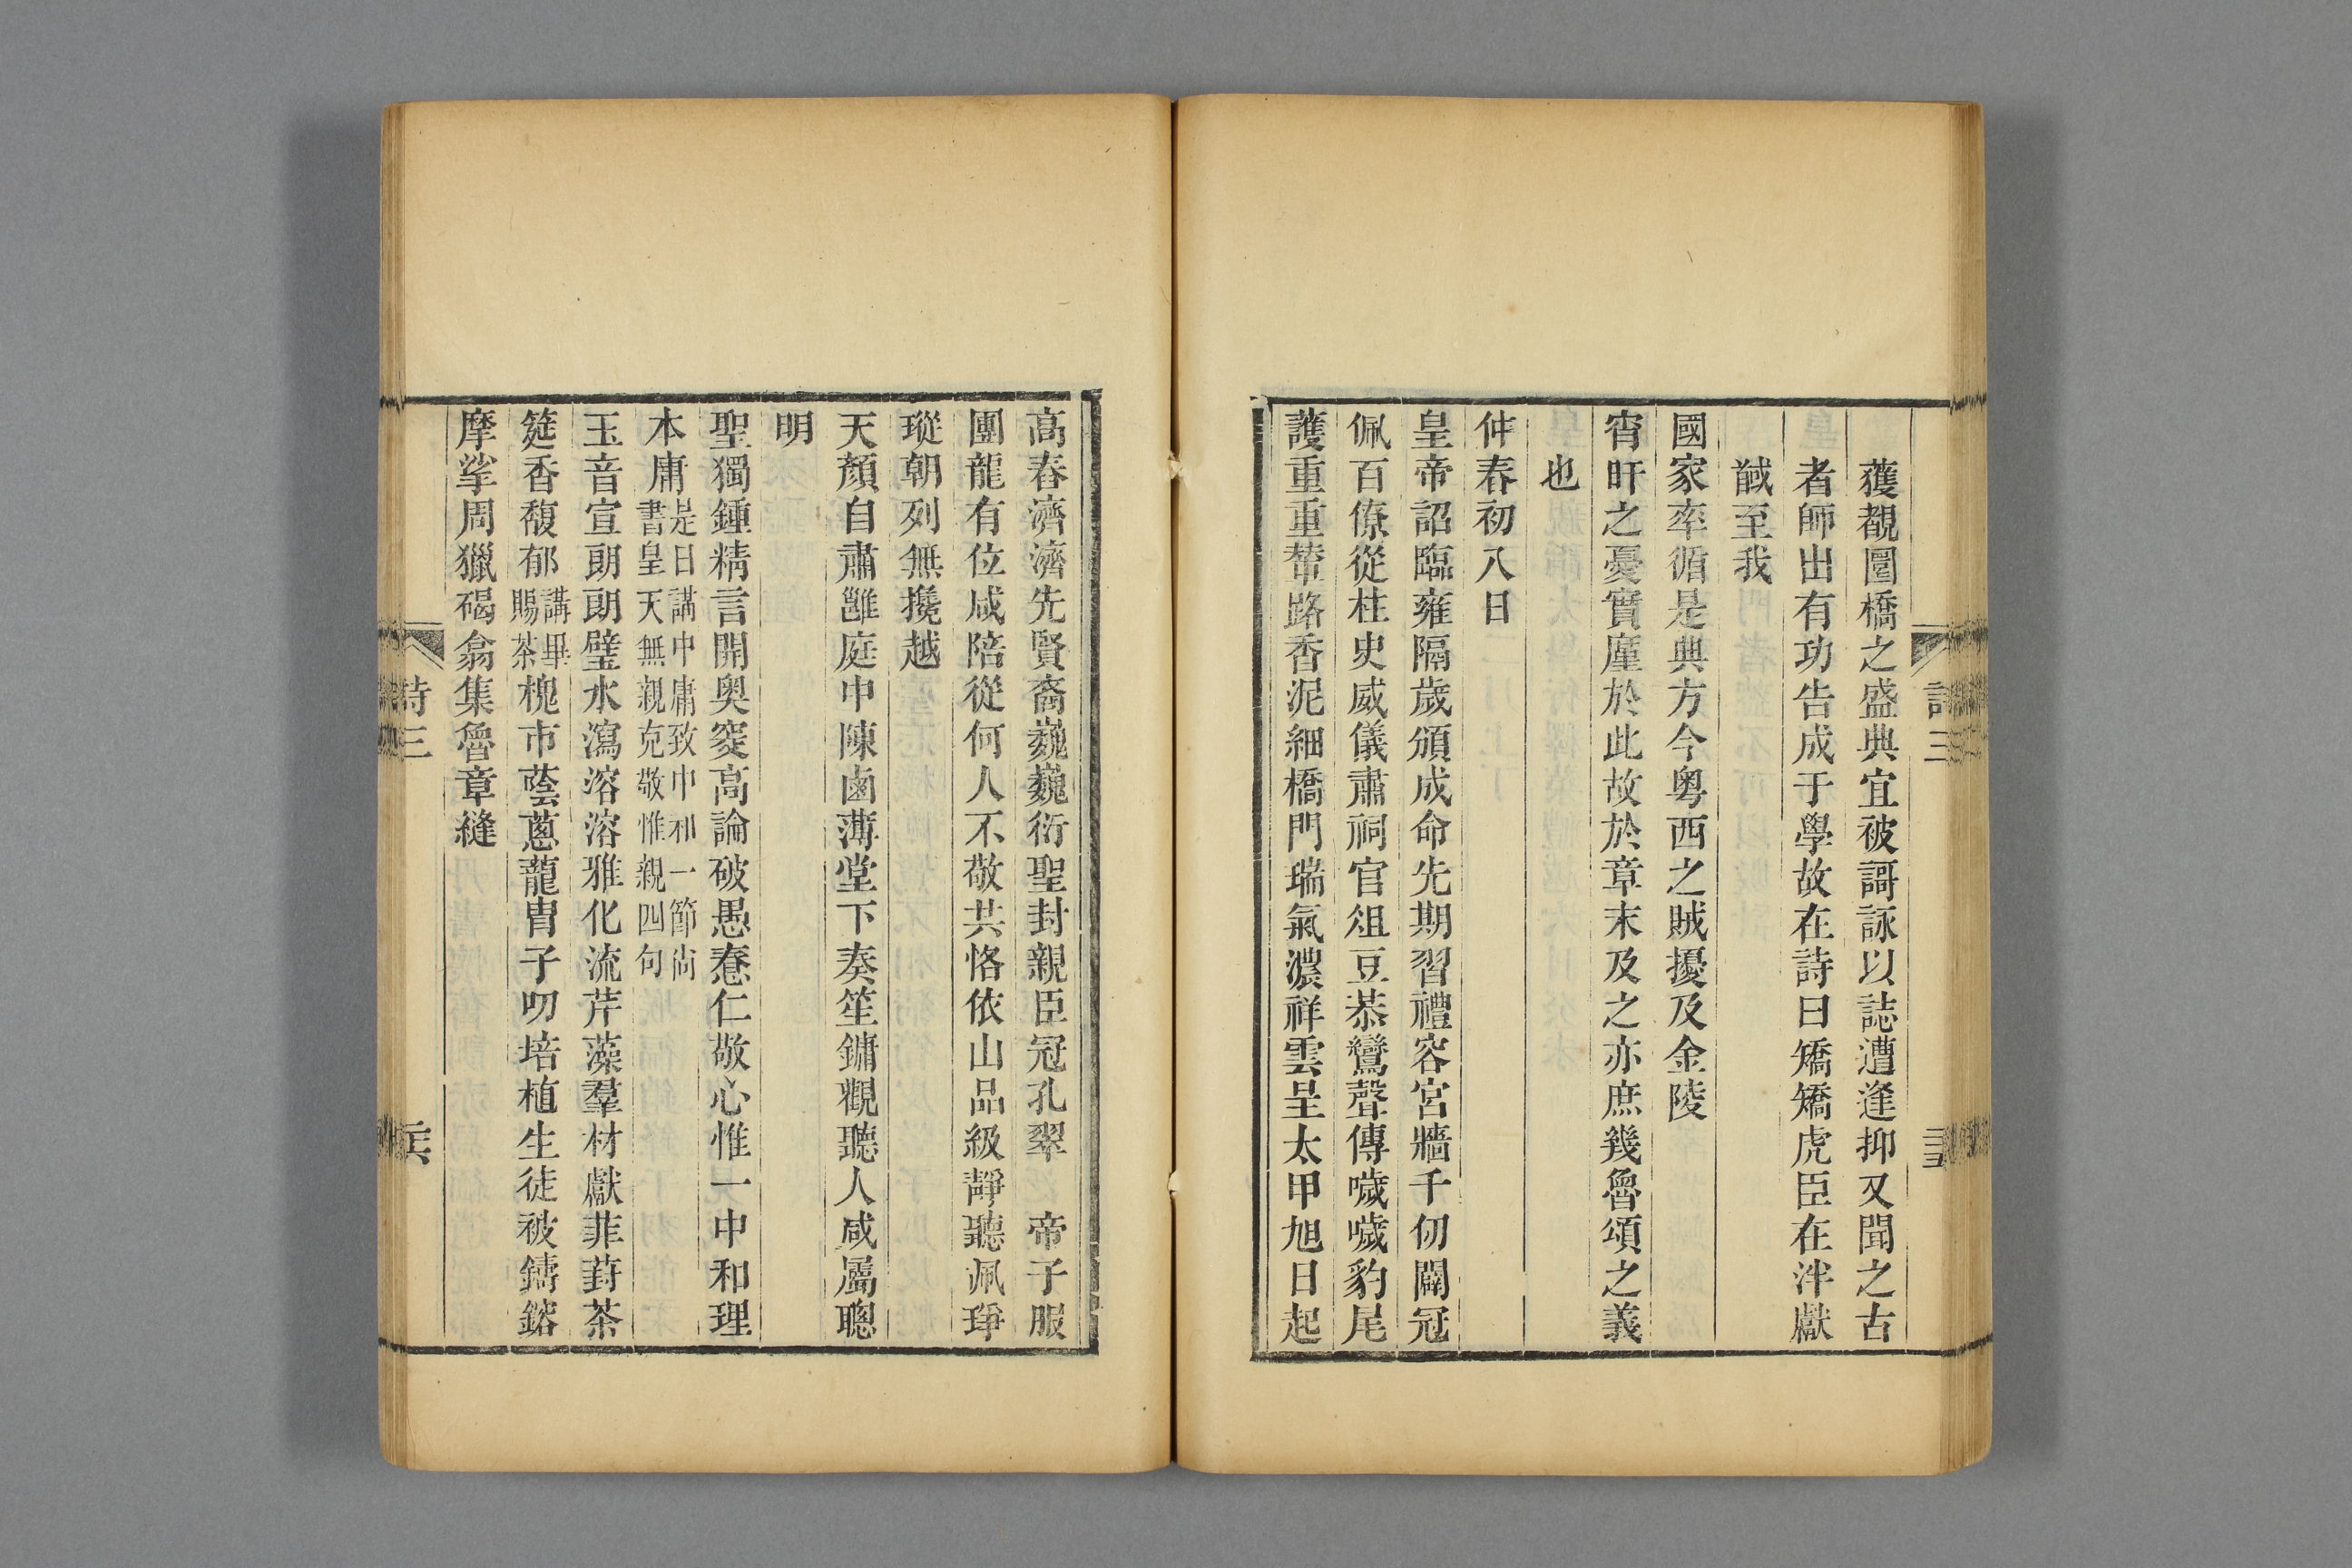 獲覩圜橋之盛典宜被謌詠以誌遭逢抑又聞之古
者師出有功告成于學故在詩曰矯矯虎臣在泮獻
馘至我
國家率循是典方今粤西之賊擾及金陵
宵旰之憂實廑於此故於章末及之亦庶幾魯頌之義
也
仲春初八日
皇帝詔臨雍隔歲頒成命先期習禮容宮牆千仞闢冠
佩百僚從柱史威儀肅祠官俎豆恭鸞聲傳噦噦豹尾
護重重輦路香泥細橋門瑞氣濃祥雲呈太甲旭日起
高舂濟濟先賢裔巍巍衍聖封親臣冠孔翠帝子服
團龍有位咸陪從何人不敬共恪依山品級靜聽佩琤
瑽朝列無攙越
天顏自肅雝庭中陳鹵薄堂下奏笙鏞觀聽人咸屬聰
明
聖獨鍾精言開奧窔高論破愚惷仁敬心惟一中和理
本庸是日講中庸致中和一節尚書皇天無親克敬惟親四句
玉音宣朗朗璧水瀉溶溶雅化流芹藻羣材獻菲葑茶
筵香馥郁講畢賜茶槐市蔭蔥蘢胄子叨培植生徒被鑄鎔
摩挲周獵碣翕集魯章縫
詩三
詩三